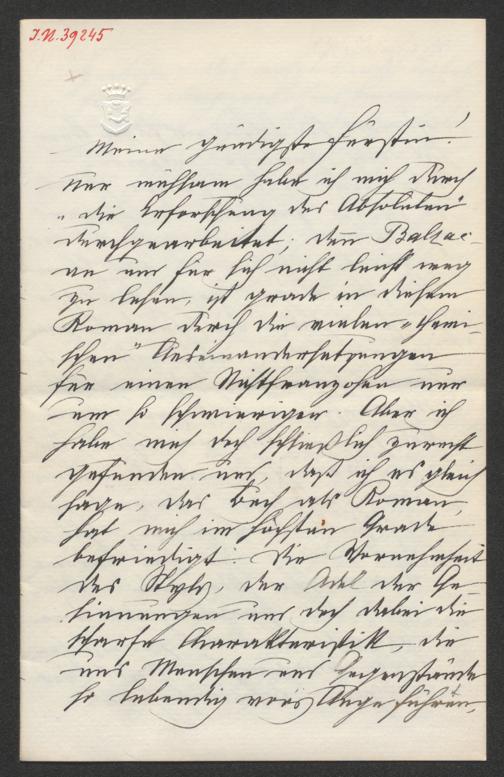 J.N. 39245
Meine gnädigste Fürstin!
Nur mühsam habe ich mich durch
„die Erforschung des Absoluten"
durchgearbeitet; denn Balzac
an und für sich nicht leicht weg
zu lesen, ist grade in diesem
Roman durch die vielen „chemi-
schen" Auseinandersetzungen
für einen Nichtfranzosen nur
um so schwieriger. Aber ich
habe mich doch schließlich zurecht
gefunden und, daß ich es gleich
sage, das Buch als Roman
hat mich im höchsten Grade
befriedigt. Die Vornehmheit
des Styls, der Adel der Ge-
sinnungen und doch dabei die
scharfe Charakteristik, die
uns Menschen und Gegenstände
so lebendig vor's Auge führen,